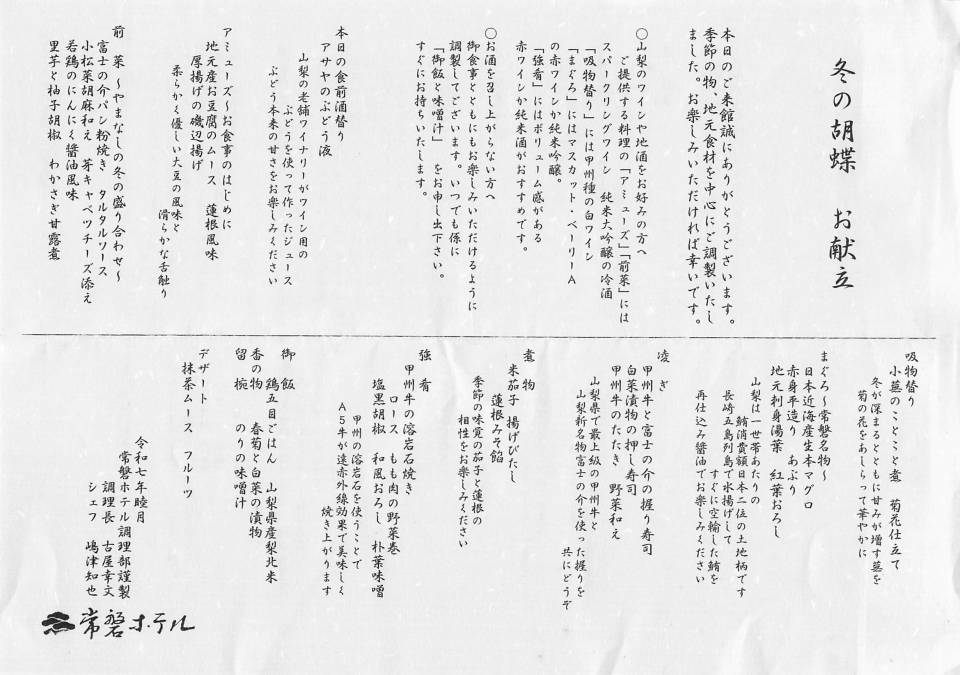 冬の胡蝶　お献立
本日のご来館誠にありがとうございます。
季節の物、地元食材を中心にご調製いたし
ました。お楽しみいただければ幸いです。
〇山梨のワインや地酒をお好みの方へ
ご提供する料理の「アミューズ」「前菜」には
スパークリングワイン　純米大吟醸の冷酒
「吸物替り」には甲州種の白ワイン
「まぐろ」にはマスカット・ベーリーA
の赤ワインか純米吟醸。
「強肴」にはボリューム感がある
赤ワインか純米酒がおすすめです。
〇お酒を召し上がらない方へ
御食事とともにもお楽しみいただけるように
調製してございます。いつでも係に
「御飯と味噌汁」　をお申し出下さい。
すぐにお持ちいたします。
本日の食前酒替り
アサヤのぶどう液
山梨の老舗ワイナリーがワイン用の
ぶどうを使って作ったジュース
ぶどう本来の甘さをお楽しみください
アミューズ～お食事のはじめに
地元産お豆腐のムース　蓮根風味
厚揚げの磯辺揚げ
柔らかく優しい大豆の風味と
滑らかな舌触り
前　菜　～やまなしの冬の盛り合わせ～
富士の介パン粉焼き　タルタルソース
小松菜胡麻和え　芽キャベツチーズ添え
若鶏のにんにく醤油風味
里芋と柚子胡椒　わかさぎ甘露煮
吸物替り
小蕪のことこと煮　菊花仕立て
冬が深まるとともに甘みが増す蕪を
菊の花をあしらって華やかに
まぐろ～常磐名物～
日本近海産生本マグロ
赤身平造り　あぶり
地元刺身湯葉　紅葉おろし
山梨は一世帯あたりの
鮪消費額日本二位の土地柄です
長崎五島列島で水揚げして
すぐに空輸した鮪を
再仕込み醤油でお楽しみください
凌　ぎ
甲州牛と富士の介の握り寿司
白菜漬物の押し寿司
甲州牛のたたき　野菜和え
山梨県で最上級の甲州牛と
山梨新名物富士の介を使った握りを
共にどうぞ
煮　物
米茄子　揚げびたし
蓮根みそ餡
季節の味覚の茄子と蓮根の
相性をお楽しみください
強　肴
甲州牛の溶岩石焼き
ロース　もも肉の野菜巻
塩黒胡椒　和風おろし　朴葉味噌
甲州の溶岩石を使うことで
A5牛が遠赤外線効果で美味しく
焼き上がります
御　飯　鶏五目ごはん　山梨県産梨北米
香の物　春菊と白菜の漬物
留　椀　のりの味噌汁
デザート
抹茶ムース　フルーツ
令和七年睦月
常磐ホテル調理部謹製
調理長　古屋幸文
シェフ　嶋津知也
常磐ホテル